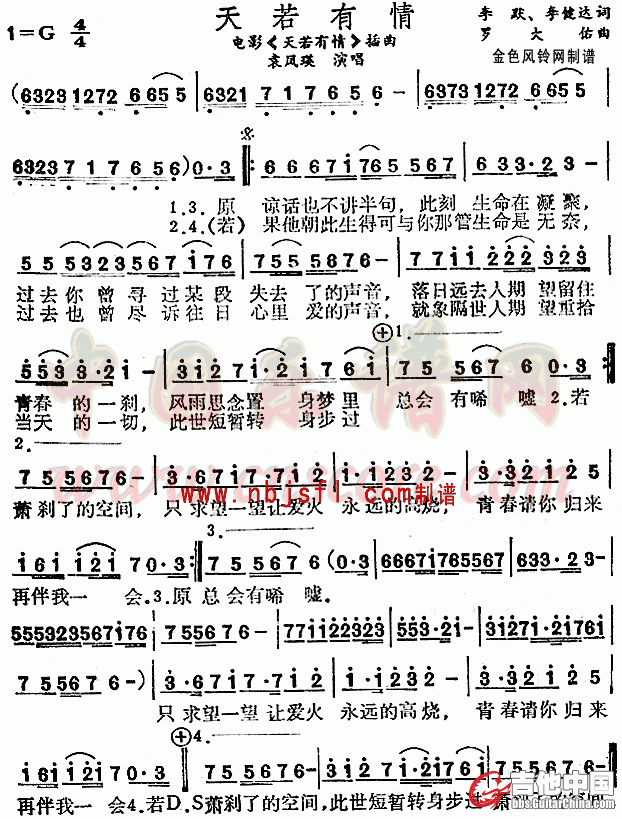 天若有情
1=G 4/4
李 默、李健达词
电影《天若有情》插曲
罗 大 佑曲
袁凤瑛 演唱
金色风铃网制谱
(6323 1272 6 65 5 | 6321 7 1 7 6 5 6 - | 6373 1272 6 65 5 |
6323 7 1 7 6 5 6) 0·3 | 6 6 6 6 7 1 7 6 5 5 6 7 | 6 3 3· 2 3 - |
1.3. 原 谅话也不讲半句，此刻 生命在 凝聚，
2.4.(若) 果他朝此生得可与你那管生命是 无奈，
5 5 5 3 2 3 5 6 7 1 7 6 | 7 5 5 6 7 6 - | 7 7 1 1 2 2 2 3 2 3 |
过去 你 曾 寻 过某 段 失去 了的声音， 落日远去人期 望留住
过去 也 曾 尽 诉往 日 心里 爱的声音， 就象隔世人期 望重拾
1.
5 5 3 3· 2 1 - | 3 1 2 7 1· 2 1 7 6 | 7 5 5 6 7 6 0·3
青春 的一刹， 风雨思念置 身梦里 总会 有唏 嘘 2.若
当天 的一切， 此世短暂转 身步过
2.
7 5 5 6 7 6 - | 3· 6 7 1 7 7 1 2 | 1· 1 2 3 2 - | 3· 3 2 1 2 5
www.nbjsfl.com制谱
萧刹了的空间， 只求望一望让爱火 永远的高烧， 青春请你归来
3.
1 6 1 1 2 1 7 0·3 | 7 5 5 6 7 6 (0·3 | 6 6 6 7 1 7 6 5 5 6 7 | 6 3 3· 2 3 -
再伴我一 会.3.原 总会有唏 嘘。
5 5 5 3 2 3 5 6 7 1 7 6 | 7 5 5 6 7 6 - | 7 7 1 1 2 2 3 2 3 | 3 1 2 7 1· 2 1 7 6 1
7 5 5 6 7 6 -) | 3· 6 7 1 7 7 1 2 | 1· 1 2 3 2 - | 3· 3 2 1 2 5
只 求望一望 让爱火 永远的高烧， 青春请你归来
4.
1 6 1 1 2 1 7 0·3 | 7 5 5 6 7 6 - | 3 1 2 7 1· 2 1 7 6 1 | 7 5 5 6 7 6 -
再伴我一 会4.若D.S萧刹了的空间，此世短暂转身步过 萧
吉他中国
bbs.GuitarChina.com